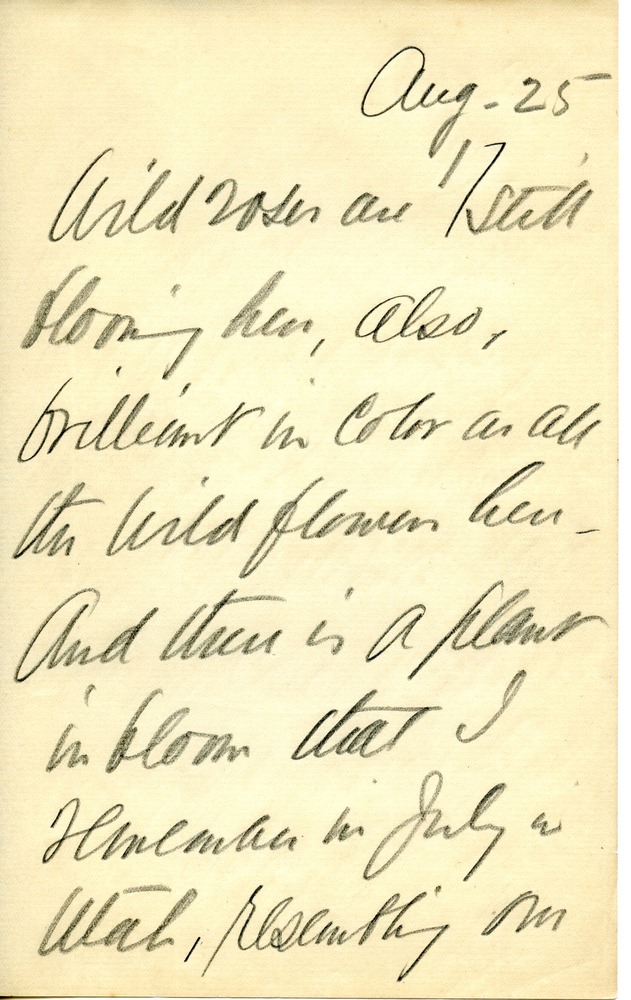 Aug. 25
17
Wild roses are still
blooming here, also,
brilliant in color as all
the wild flowers here -
And there is a plant
in bloom that I
remember in July in
Utah, resembling our